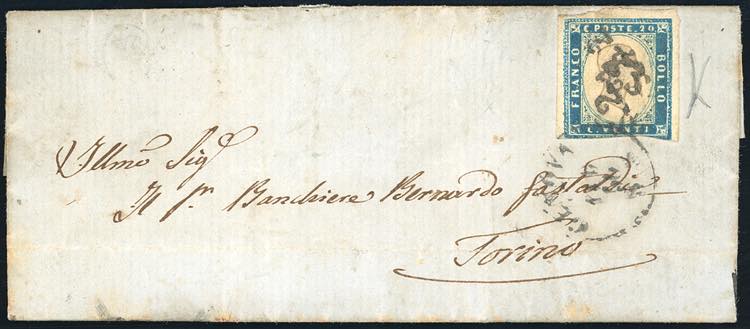 C POSTE 20
FRANCO
BOLLO
C. VENTI
Illmo Sig.
Il Sr. Banchiere Bernardo Gastaldi
Torino
GENOVA
K